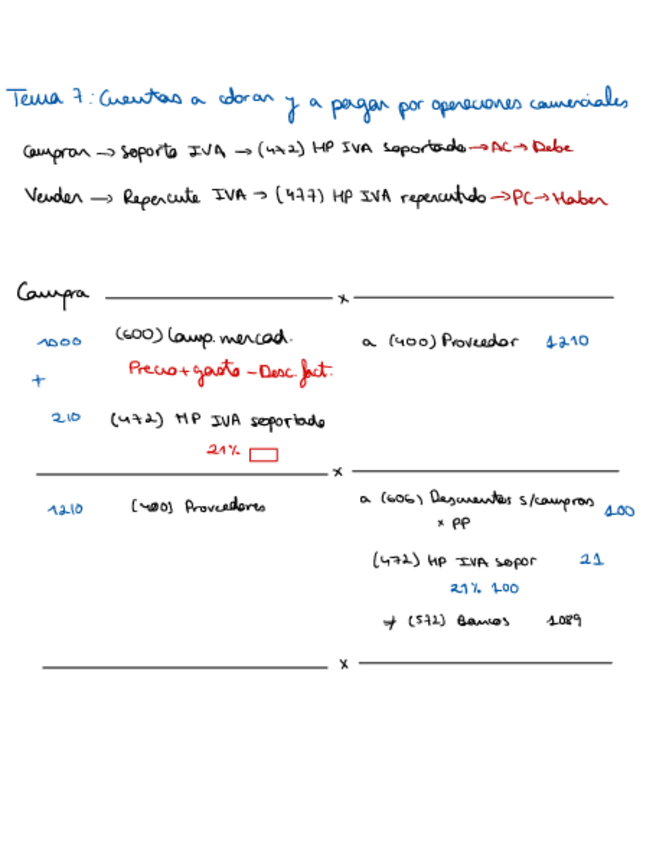 Tema 7: Cuentas a cobrar y a pagar por operaciones comerciales
Comprar → Soporta IVA → (472) HP IVA soportado → AC → Debe
Vender → Repercute IVA → (477) HP IVA repercutido → PC → Haber
Compra x
1000 (600) Comp. mercad. a (400) Proveedor 1210
+ Precio + gasto - Desc. fact.
210 (472) HP IVA soportado
21%
x
1210 (400) Proveedores a (606) Descuentos s/compras 100
x PP
(472) HP IVA sopor 21
21% 100
+ (572) Bancos 1089
x